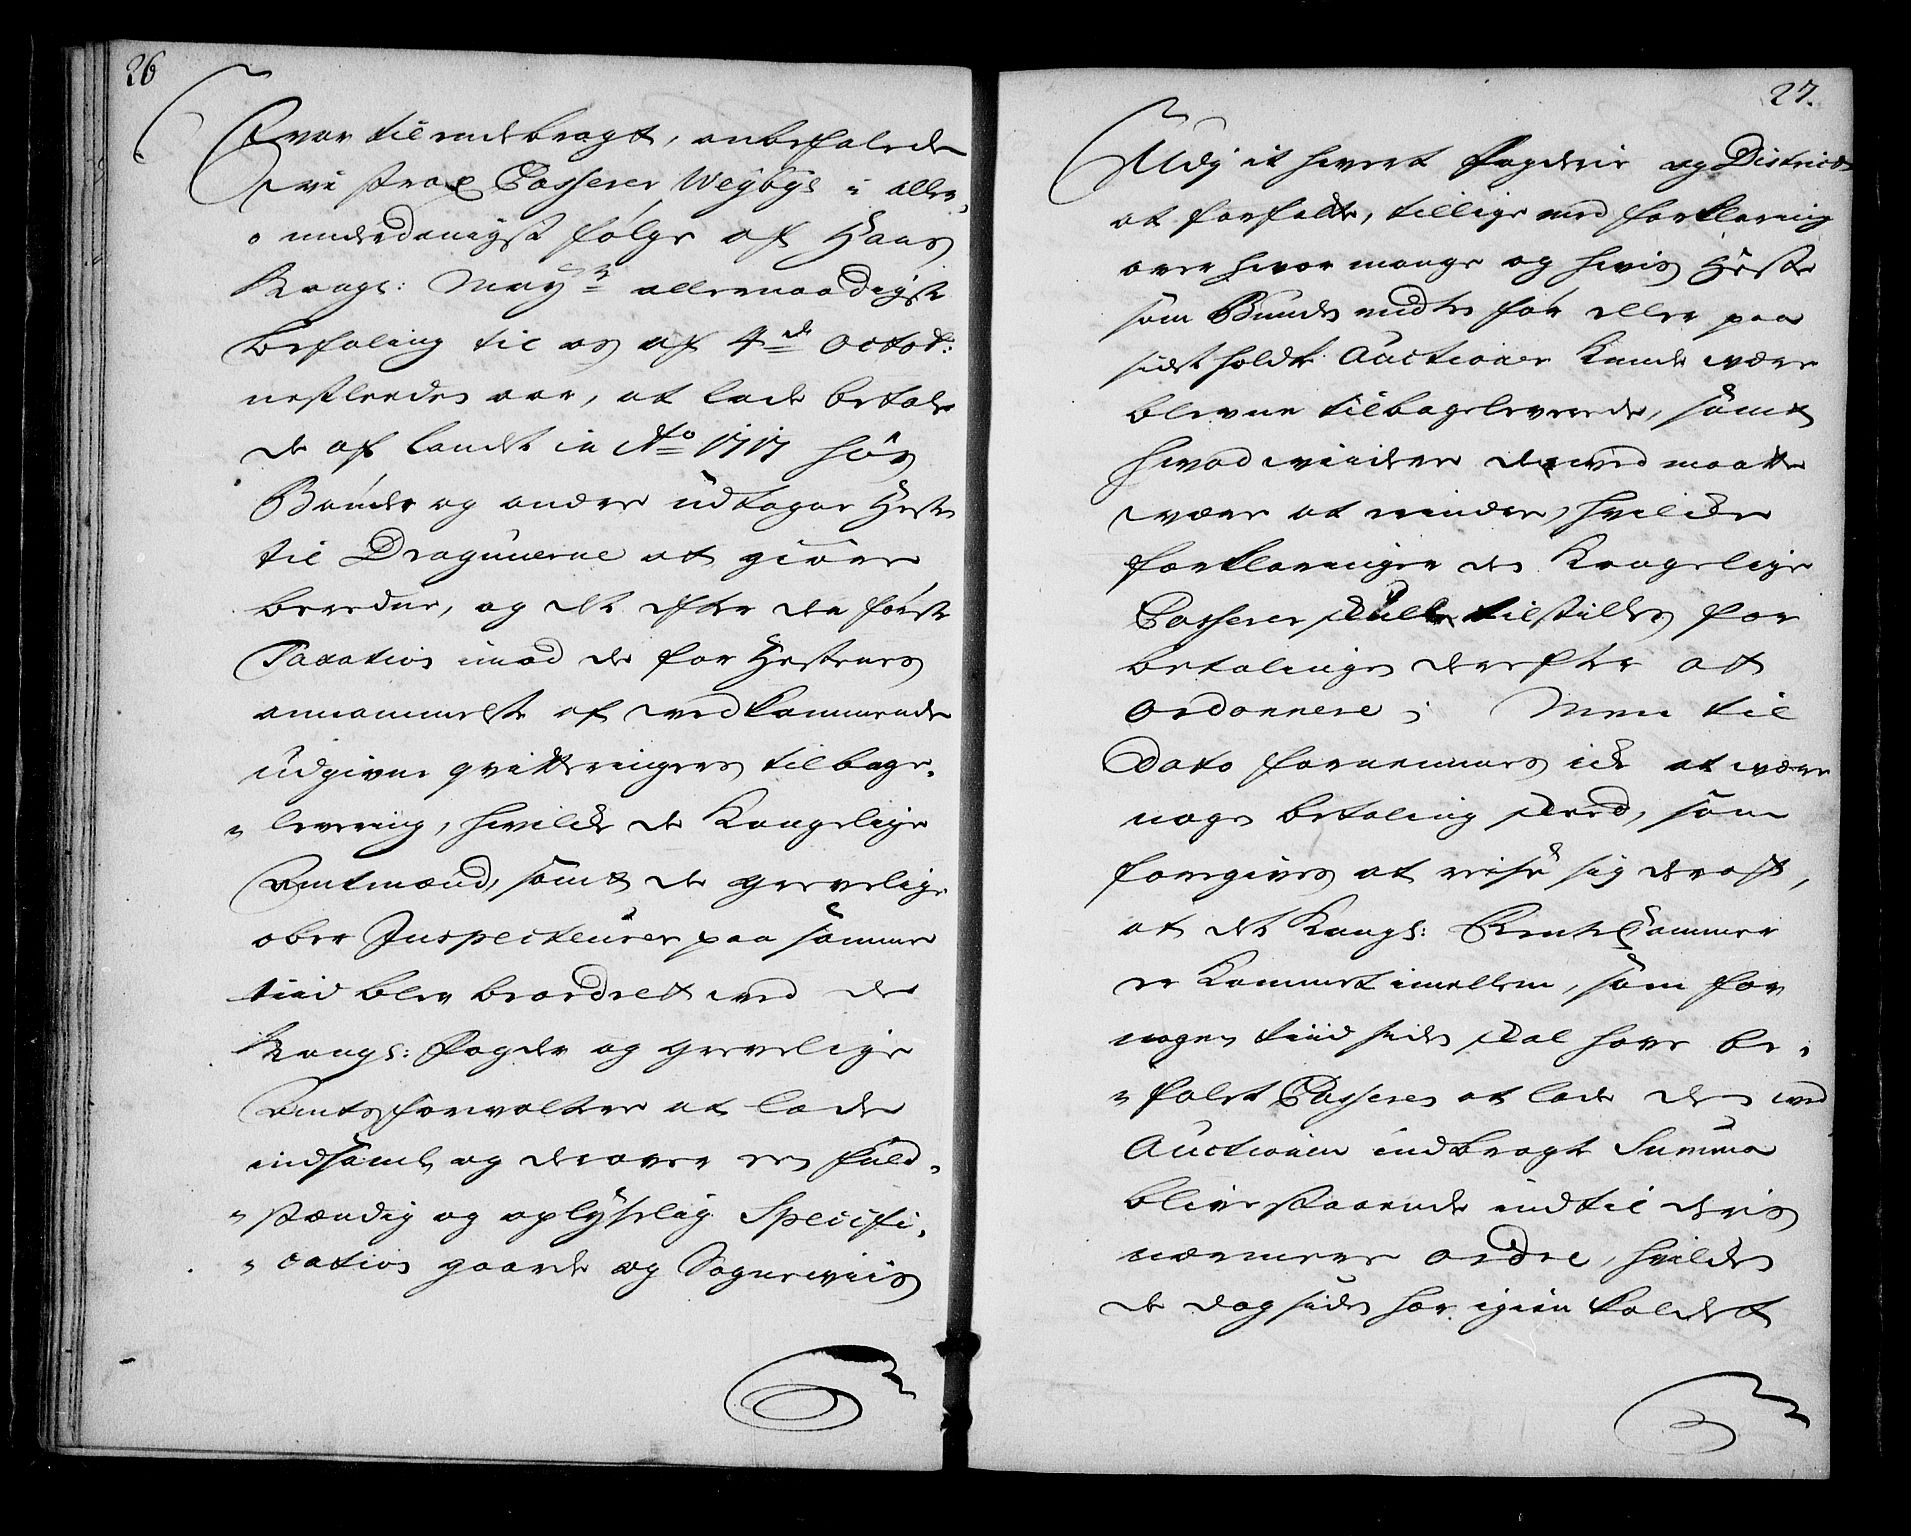 26
var til ende bragt, anbefalede
vi strax Casserer Weybye i aller,
underdanigst følge af Hans
Kongl: May.ts allernaadigste
befaling til os af 4de Octob:
nestleeden aar, at lade betale
de af landet in Ao 1717 hos
Bønder og andre udtagne Heste
til Dragunerne at giøre
beredne, og det efter den første
Taxation imod de for Hestenes
annammelse af vedkommende
udgivne qvitteringers tilbage,
levering, hvilche de Kongelige
Amtmænd, samt de grevelige
ober Inspecteurer paa samme
tiid blev beordret ved de
Kongl: Fogder og grevelige
Amtsforvaltere at lade
indsamle og derover en fuld,
stændig og oplyselig Specifi,
cation gaarde og Sogneviis
27.
Udj it hvert Fogderie og District
at forfatte, tillige med forklaring
over hvor mange og hvis Heste
som Bunden endten før eller paa
sidst holdte Auctioner kunde være
blevne tilbageleverede, samt
hvad viidere derved maatte
være at erindre, hvilche
forklaringer den Kongelige
Casserer skulle tilstilles for
betalingen derefter at
ordonnere; Men til
Dato fornemmes iche at være
nogen betaling skeed, som
foregives at reise sig deraf,
at det Kongl: Rentekammer
er kommet imellem, som for
nogen tiid siden skal have be,
falet Casseren at lade den ved
Auctionen indbragte Summa
blive staaende indtil deris
nærmere ordre, hvilchen
de dog siden har igien kaldet